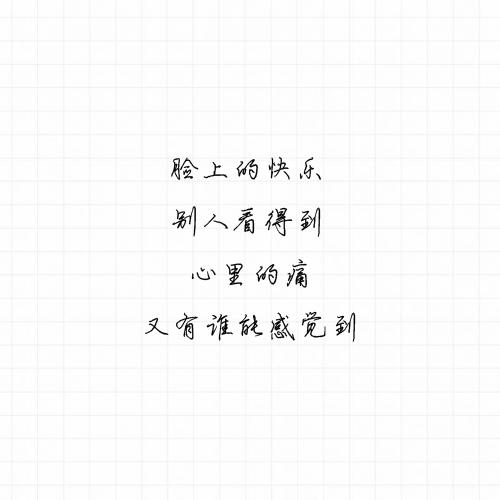 脸上的快乐
别人看得到
心里的痛
又有谁能感觉到